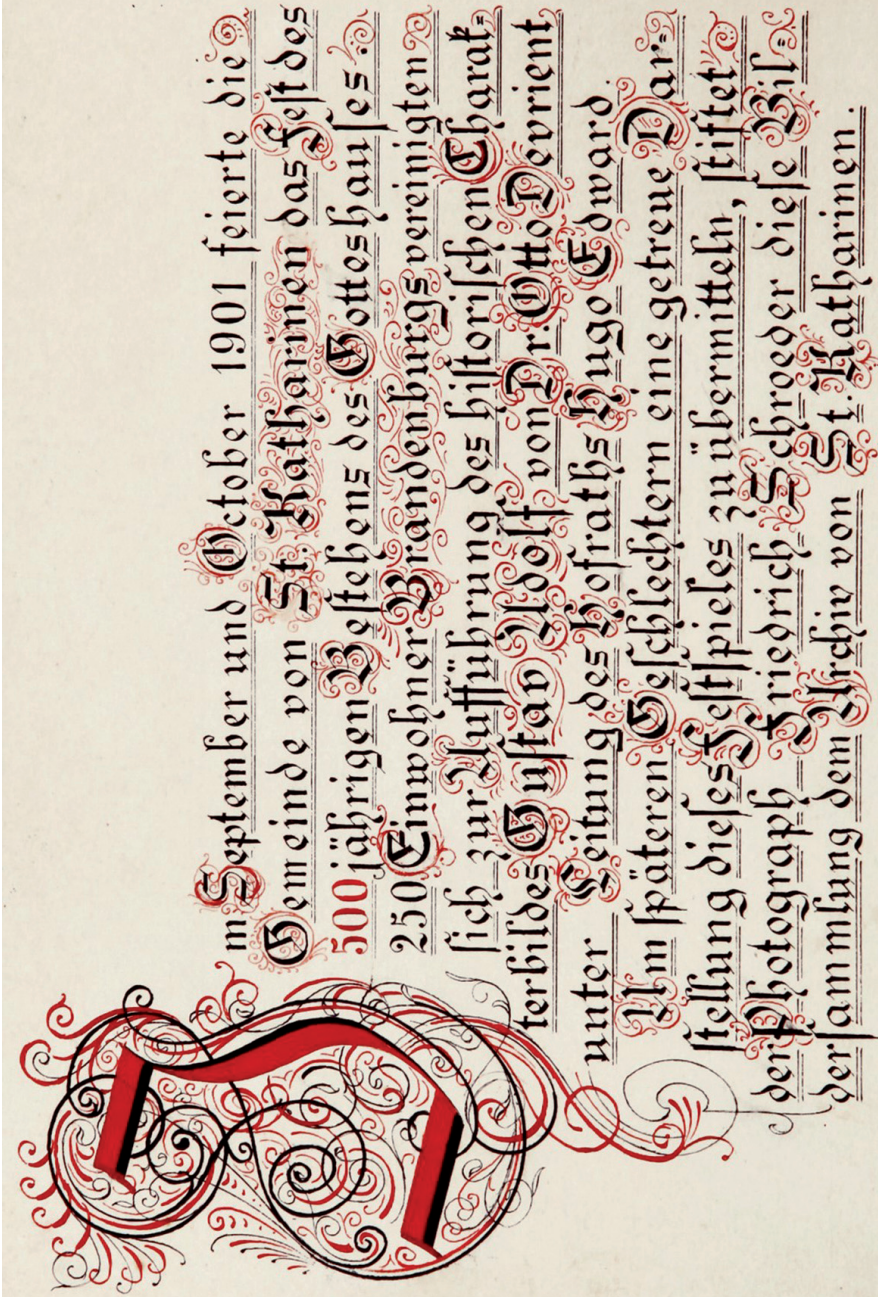 Im September und October 1901 feierte die
Gemeinde von St. Katharinen das Fest des
500jährigen Bestehens des Gotteshauses.
250 Einwohner Brandenburgs vereinigten
sich zur Aufführung des historischen Charak=
terbildes Gustav Adolf von Dr. Otto Devrient
unter Leitung des Hofraths Hugo Edward.
Um späteren Geschlechtern eine getreue Dar=
stellung dieses Festspieles zu übermitteln, stiftet
der Photograph Friedrich Schroeder diese Bil=
dersammlung dem Archiv von St. Katharinen.